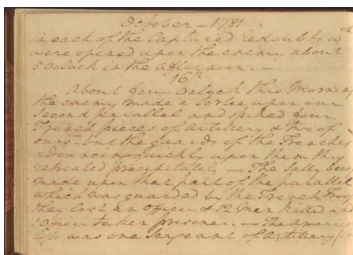 October — 1781
in each of the Captured redoubts, &
were opened upon the enemy about
5 Oclock in the afternoon. —
16th
About four Oclock this Morning
the enemy made a Sortee upon our
Second parallel and spiked four
French pieces of Artillery & two of
ours — but the guards of the Trenches
advancing quickly upon them they
retreated precipitately — The Sally being
made upon that part of the parallel
which was guarded by the French Troops
they lost an Officer & 12 Men killed and
1 Officer taken prisoner. — The American
loss was one Sergeant of Artillery